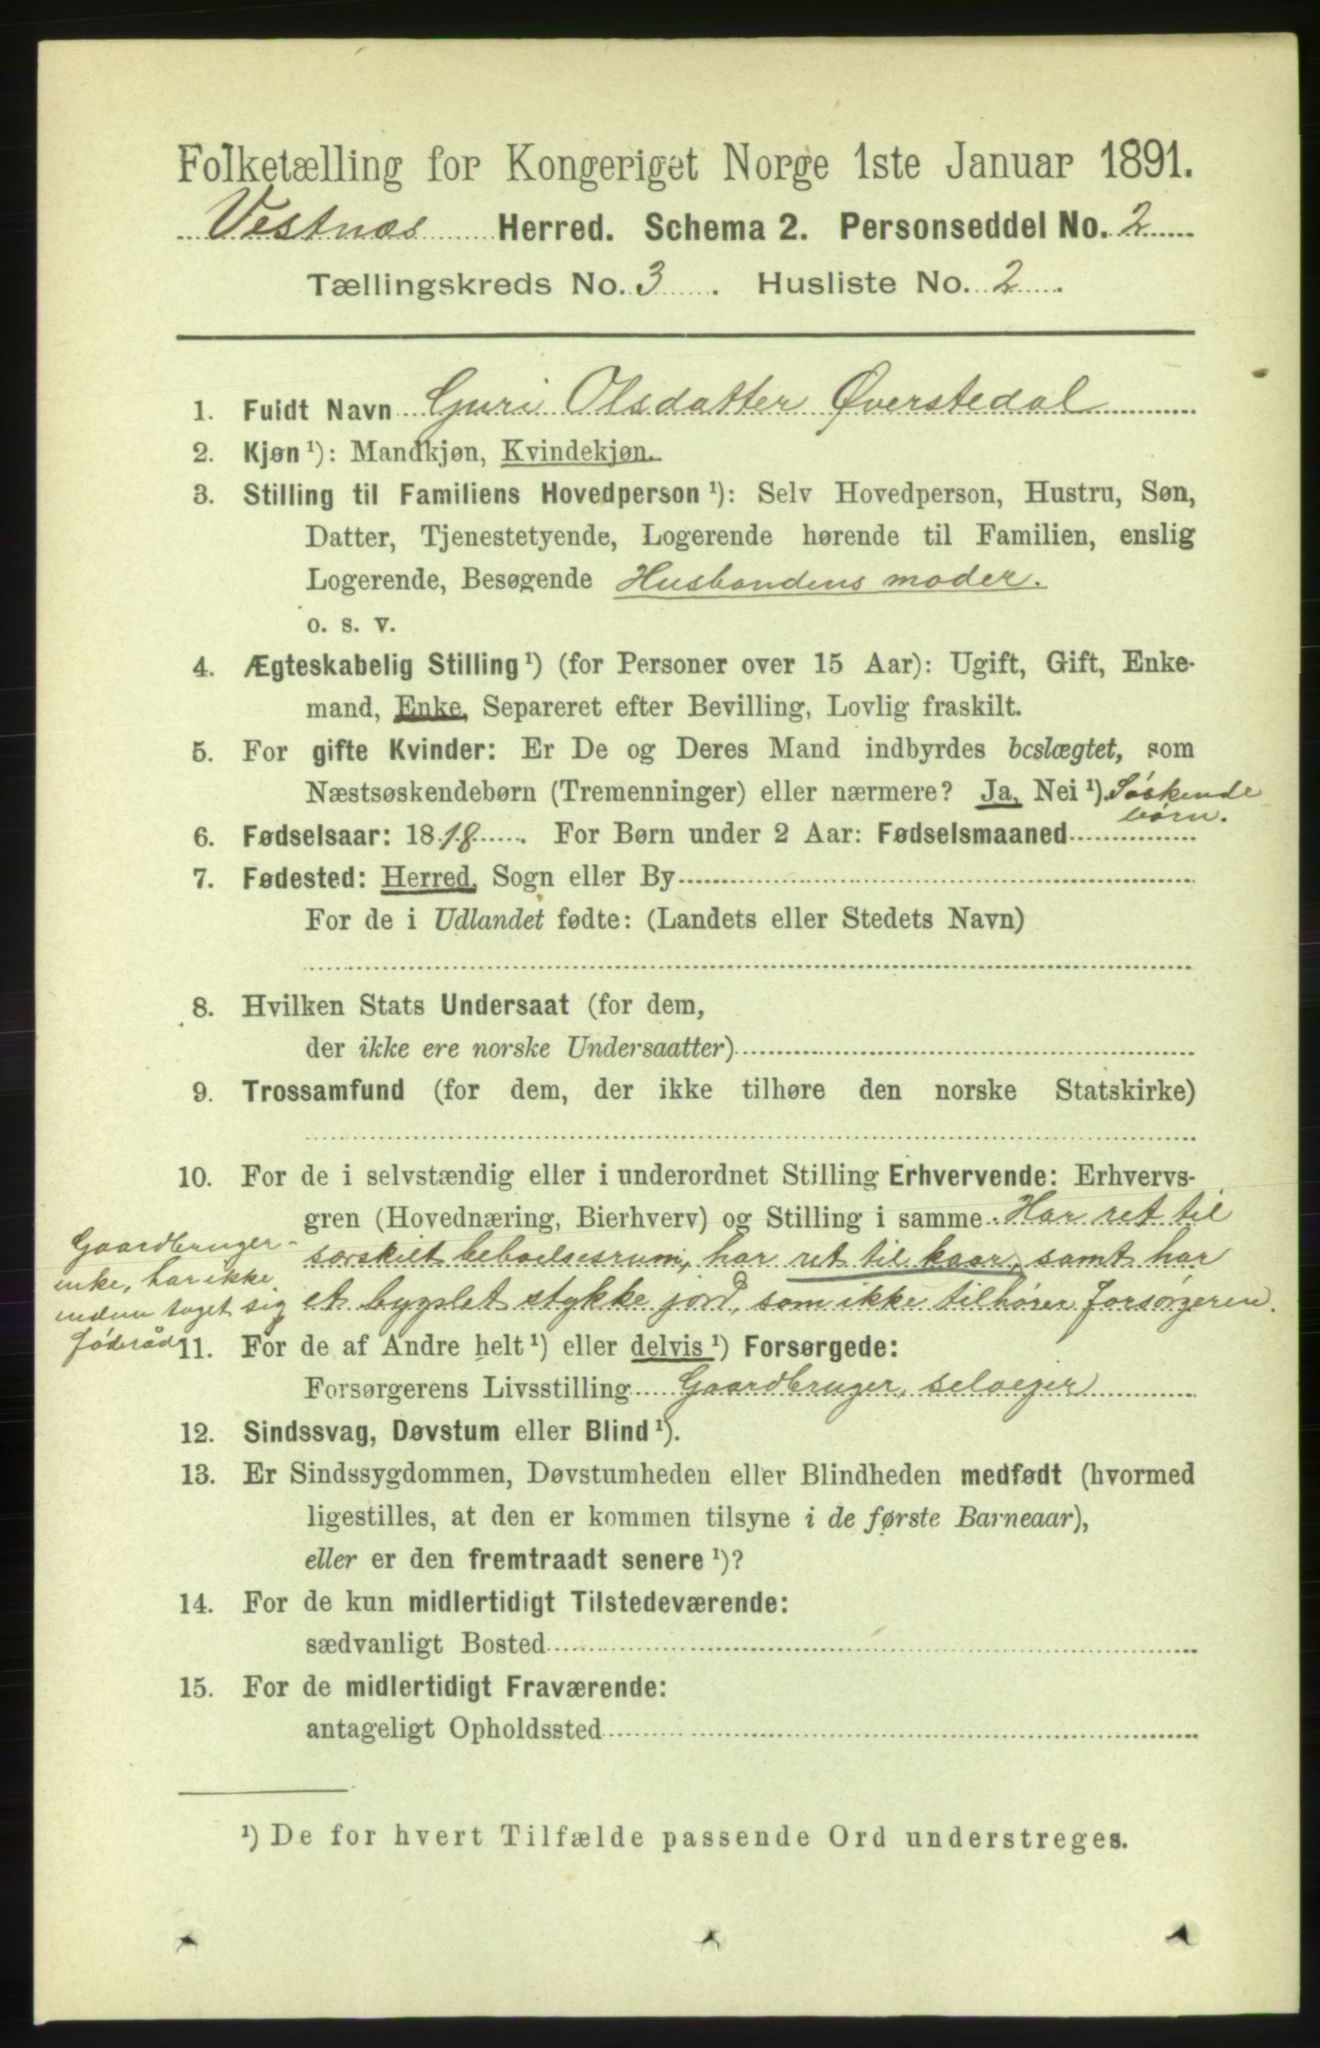 Folketælling for Kongeriget Norge 1ste Januar 1891.
Vestnæs Herred. Schema 2. Personseddel No. 2
Tællingskreds No. 3. Husliste No. 2.
1. Fuldt Navn Guri Olsdatter Øverstedal
2. Kjøn ¹): Mandkjøn, Kvindekjøn.
3. Stilling til Familiens Hovedperson ¹): Selv Hovedperson, Hustru, Søn,
Datter, Tjenestetyende, Logerende hørende til Familien, enslig
Logerende, Besøgende Husbondens moder.
o. s. v.
4. Ægteskabelig Stilling ¹) (for Personer over 15 Aar): Ugift, Gift, Enke-
mand, Enke, Separeret efter Bevilling, Lovlig fraskilt.
5. For gifte Kvinder: Er De og Deres Mand indbyrdes beslægtet, som
Næstsøskendebørn (Tremenninger) eller nærmere? Ja, Nei ¹). Søskende
børn.
6. Fødselsaar: 1818. For Børn under 2 Aar: Fødselsmaaned
7. Fødested: Herred, Sogn eller By
For de i Udlandet fødte: (Landets eller Stedets Navn)
8. Hvilken Stats Undersaat (for dem,
der ikke ere norske Undersaatter)
9. Trossamfund (for dem, der ikke tilhøre den norske Statskirke)
10. For de i selvstændig eller i underordnet Stilling Erhvervende: Erhvervs-
gren (Hovednæring, Bierhverv) og Stilling i samme Har ret til
særskilt beboelsesrum, har ret til kaar, samt har
et bygslet stykke jord, som ikke tilhører forsørgeren.
Gaardbruger-
enke, har ikke
enden taget sig
føderåd
11. For de af Andre helt ¹) eller delvis ¹) Forsørgede:
Forsørgerens Livsstilling Gaardbruger, selveier
12. Sindssvag, Døvstum eller Blind ¹).
13. Er Sindssygdommen, Døvstumheden eller Blindheden medfødt (hvormed
ligestilles, at den er kommen tilsyne i de første Barneaar),
eller er den fremtraadt senere ¹)?
14. For de kun midlertidigt Tilstedeværende:
sædvanligt Bosted
15. For de midlertidigt Fraværende:
antageligt Opholdssted
¹) De for hvert Tilfælde passende Ord understreges.